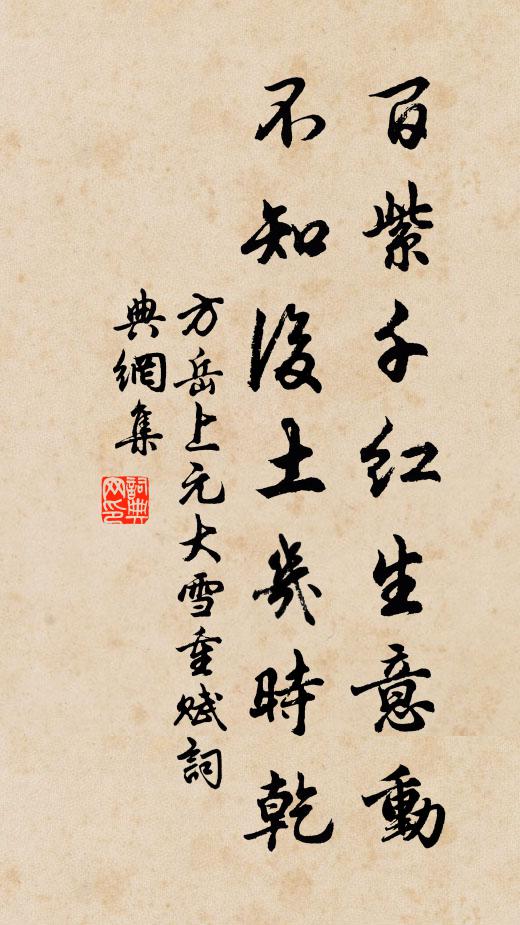 百紫千紅生意動
不知後土幾時乾
方岳上元大雪重賦詞
典網集
詞典網印